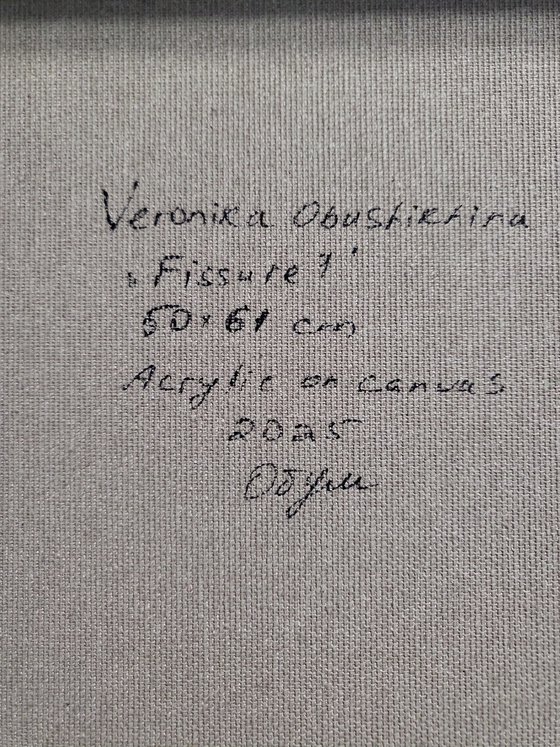 Veronika Obustiktina
„Fissure 1"
50×61 cm
Acrylic on canvas
2025